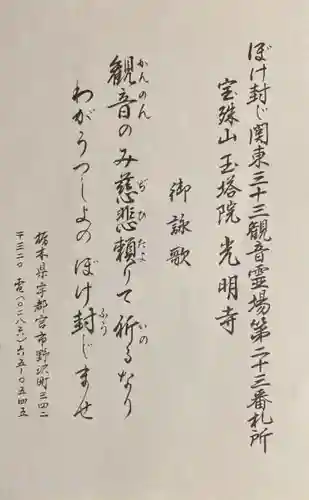 ぼけ封じ関東三十三観音霊場第二十三番札所
宝珠山玉塔院光明寺
御詠歌
観音のみ慈悲頼りて祈るなり
かんのん じひ たよ いの
わがうつしよのぼけ封じませ
ふう
栃木県宇都宮市野沢町三四二
〒三二〇 電(〇二八六)六五-〇五四五